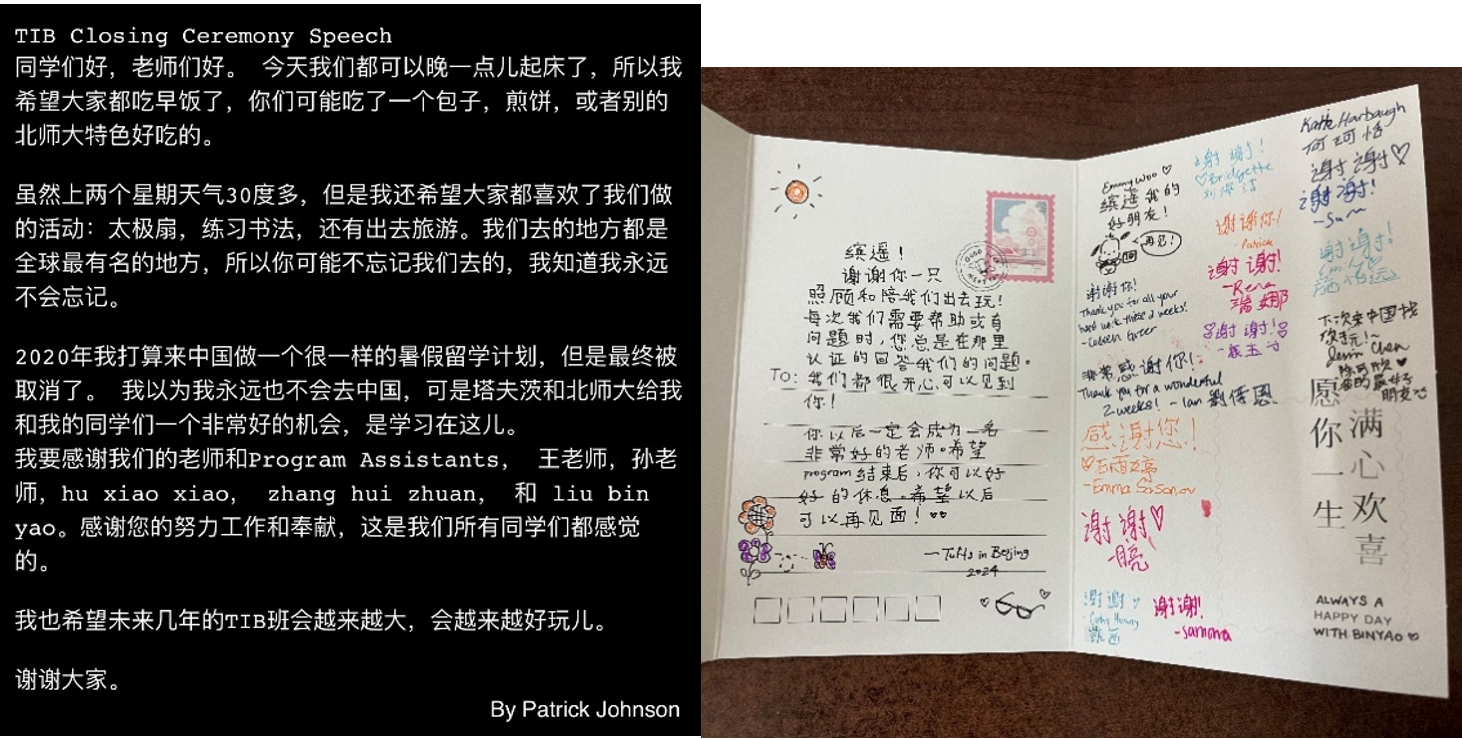 TIB Closing Ceremony Speech
同学们好，老师们好。 今天我们都可以晚一点儿起床了，所以我
希望大家都吃早饭了，你们可能吃了一个包子，煎饼，或者别的
北师大特色好吃的。
虽然上两个星期天气30度多，但是我还希望大家都喜欢了我们做
的活动：太极扇，练习书法，还有出去旅游。我们去的地方都是
全球最有名的地方，所以你可能不忘记我们去的，我知道我永远
不会忘记。
2020年我打算来中国做一个很一样的暑假留学计划，但是最终被
取消了。 我以为我永远也不会去中国，可是塔夫茨和北师大给我
和我的同学们一个非常好的机会，是学习在这儿。
我要感谢我们的老师和Program Assistants， 王老师，孙老
师，hu xiao xiao， zhang hui zhuan， 和 liu bin
yao。感谢您的努力工作和奉献，这是我们所有同学们都感觉
的。
我也希望未来几年的TIB班会越来越大，会越来越好玩儿。
谢谢大家。
By Patrick Johnson
缤遥！
谢谢你一只
照顾和陪我们出去玩！
每次我们需要帮助或有
问题时，您总是在那里
认证的回答我们的问题。
To: 我们都很开心可以见到
你！
你以后一定会成为一名
非常好的老师。希望
program 结束后，你可以好
好的休息。希望以后
可以再见面！
—Tufts in Beijing
2024
Emmy Woo
缤遥我的
好朋友！
再见！
谢谢你！
Thank you for all your
hard work these 2 weeks!
-Colleen Greer
非常感谢你！
Thank you for a wonderful
2 weeks! ~Ian
感谢您！
-Emma Sosonov
谢谢
谢谢
谢谢！
-samara
谢谢！
Bridgette
谢谢你！
-Patrick
谢谢！
-Rena
谢谢！
Katie Harbaugh
谢谢
谢谢！
-Sam
谢谢！
下次来中国找
你玩！~
Chen
朋友
愿你一生
满心欢喜
ALWAYS A
HAPPY DAY
WITH BINYAO